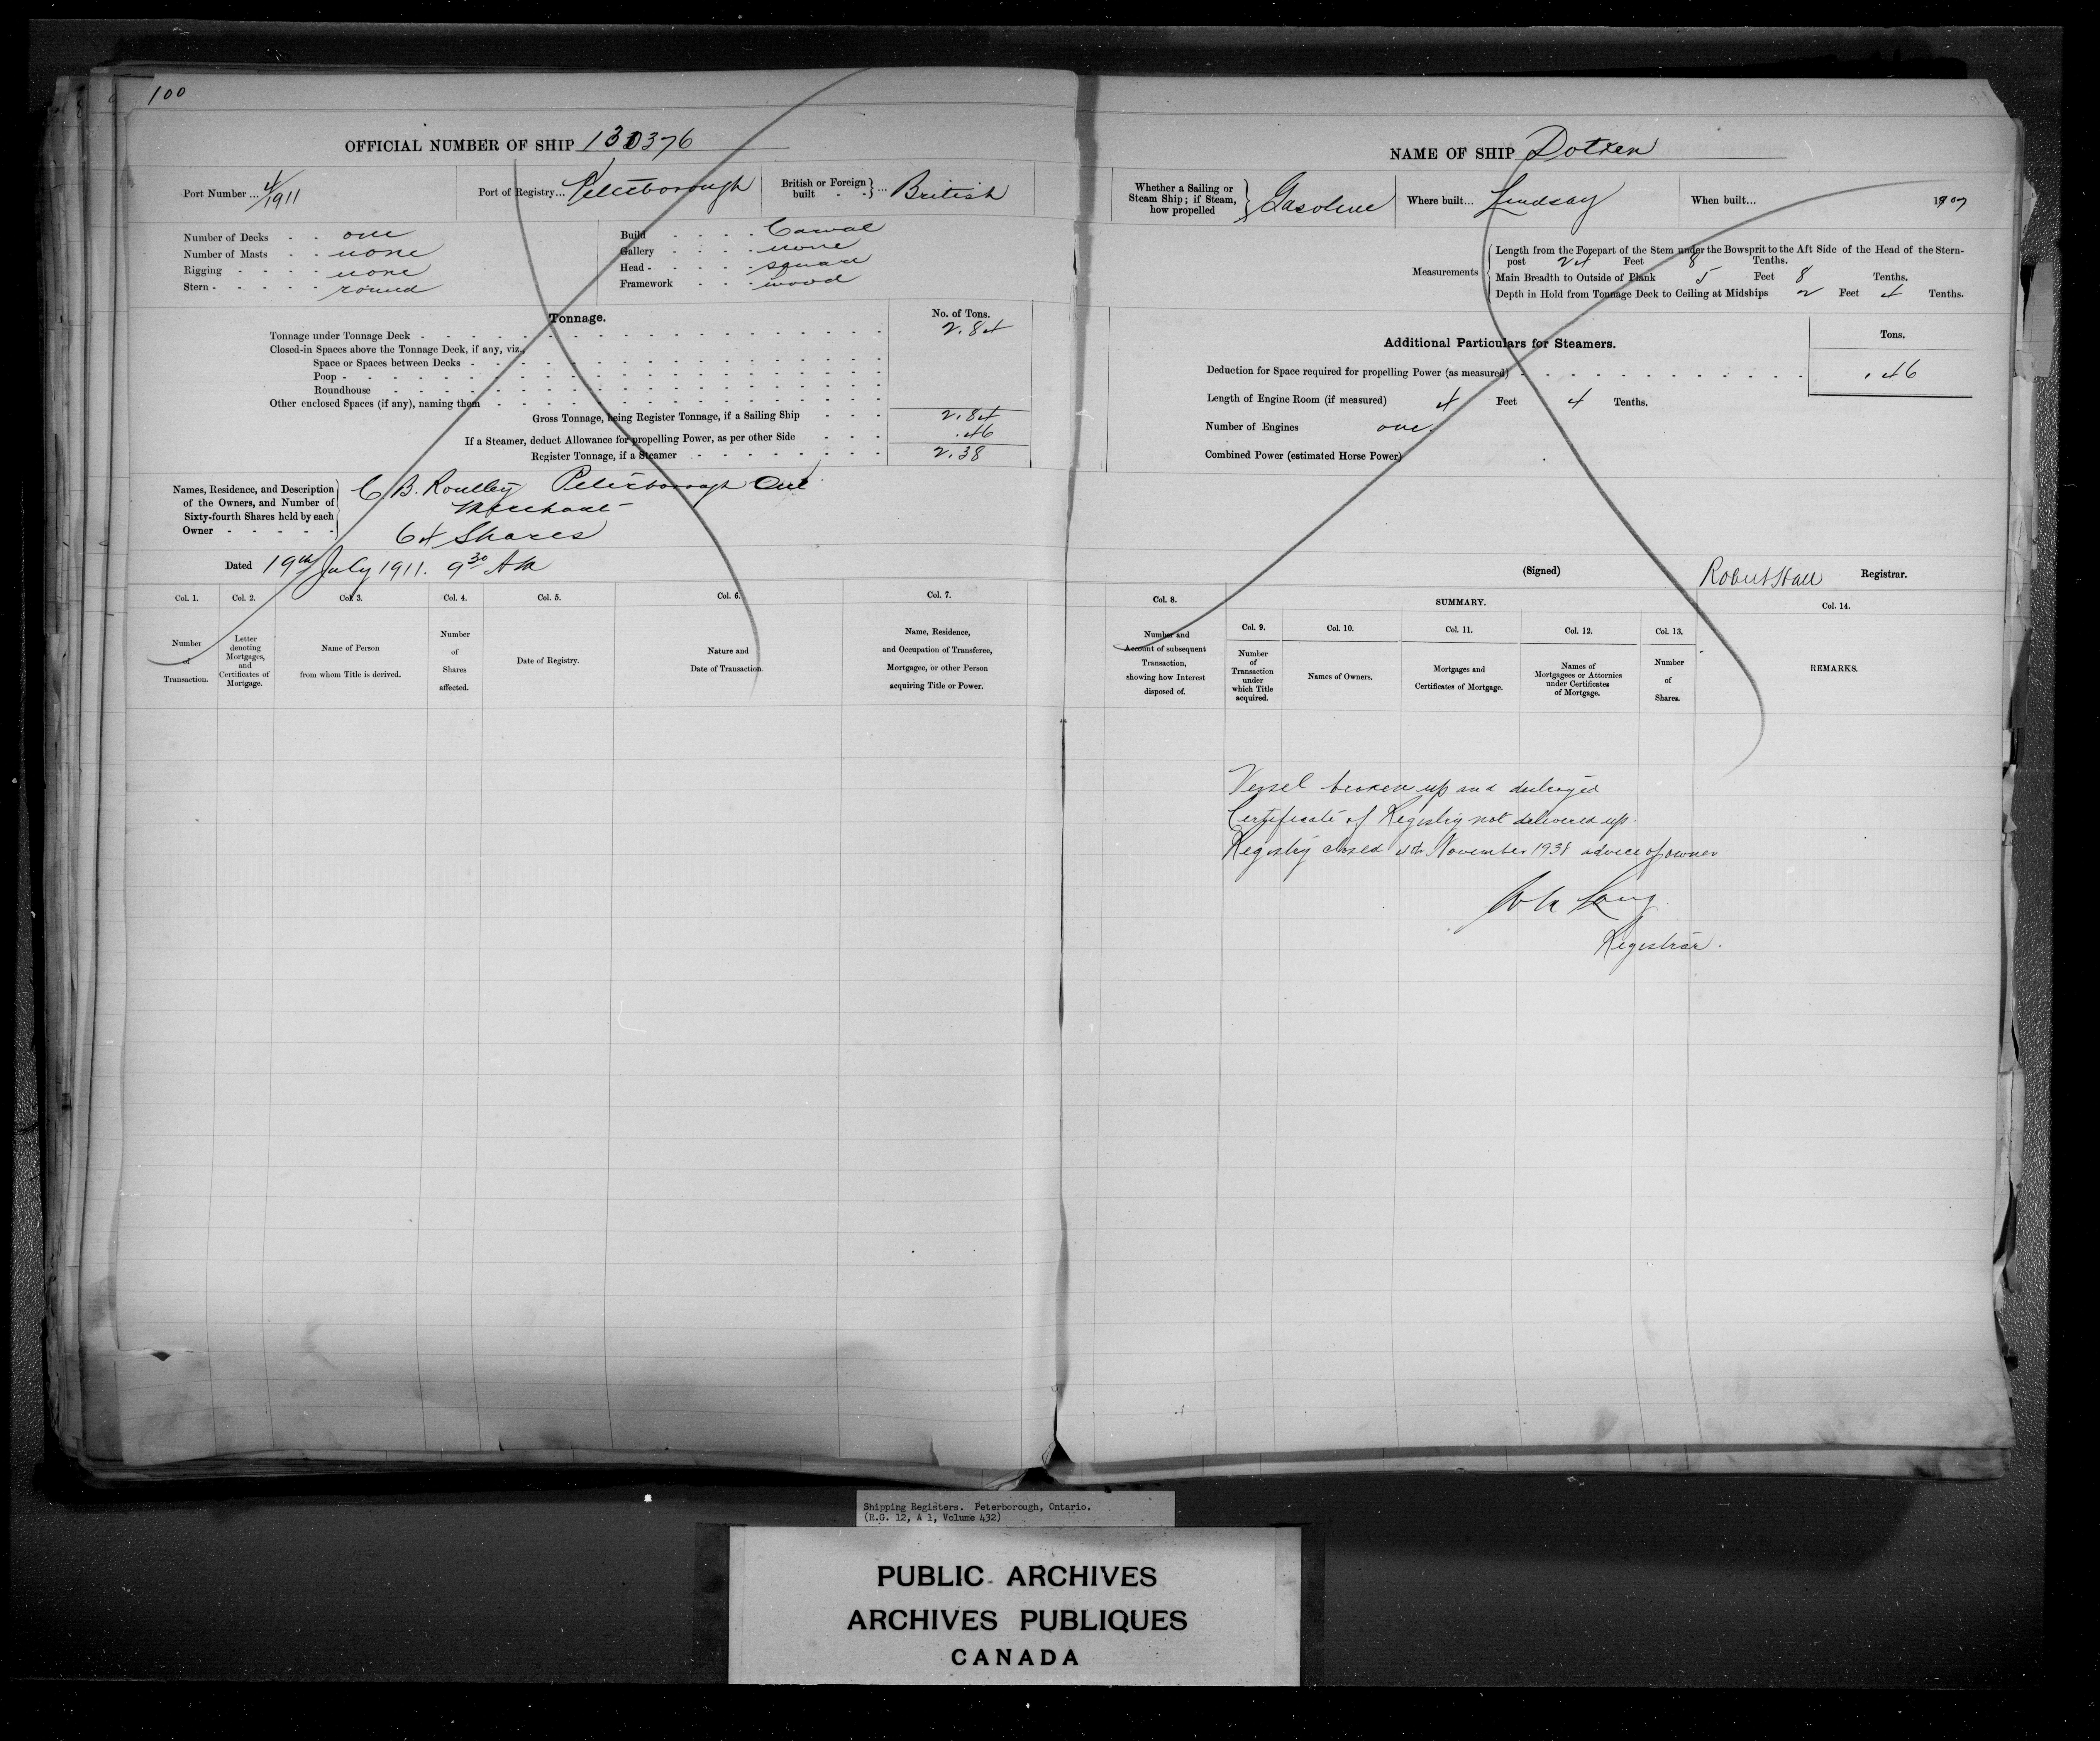 100
OFFICIAL NUMBER OF SHIP 130376
Port Number ... 4/1911
Port of Registry... Peterborough
British or Foreign built - - } ... British
Number of Decks - - one
Number of Masts - - none
Rigging - - - - none
Stern - - - - - round
Build - - - - Carval
Gallery - - - - none
Head - - - - - square
Framework - - - wood
Tonnage.
No. of Tons.
Tonnage under Tonnage Deck - 2.84
Closed-in Spaces above the Tonnage Deck, if any, viz.,
Space or Spaces between Decks -
Poop -
Roundhouse -
Other enclosed Spaces (if any), naming them
Gross Tonnage, being Register Tonnage, if a Sailing Ship - - - 2.84
If a Steamer, deduct Allowance for propelling Power, as per other Side - - - .46
Register Tonnage, if a Steamer - 2.38
Names, Residence, and Description
of the Owners, and Number of
Sixty-fourth Shares held by each
Owner - - - - -
C. B. Routley Peterborough Ont
Merchant
64 Shares
Dated 19th July 1911. 9 30 AM
Col. 1. Number of Transaction.
Col. 2. Letter denoting Mortgages, and Certificates of Mortgage.
Col. 3. Name of Person from whom Title is derived.
Col. 4. Number of Shares affected.
Col. 5. Date of Registry.
Col. 6. Nature and Date of Transaction.
Col. 7. Name, Residence, and Occupation of Transferee, Mortgagee, or other Person acquiring Title or Power.
NAME OF SHIP Dotken
Whether a Sailing or Steam Ship; if Steam, how propelled } Gasoline
Where built... Lindsay
When built... 1907
Measurements
Length from the Forepart of the Stem under the Bowsprit to the Aft Side of the Head of the Stern-
post 24 Feet 8 Tenths.
Main Breadth to Outside of Plank 5 Feet 8 Tenths.
Depth in Hold from Tonnage Deck to Ceiling at Midships 2 Feet 4 Tenths.
Additional Particulars for Steamers.
Tons.
Deduction for Space required for propelling Power (as measured) - .46
Length of Engine Room (if measured) 4 Feet 4 Tenths.
Number of Engines one.
Combined Power (estimated Horse Power)
(Signed) Robert Hall Registrar.
Col. 8. Number and Account of subsequent Transaction, showing how Interest disposed of.
SUMMARY.
Col. 9. Number of Transaction under which Title acquired.
Col. 10. Names of Owners.
Col. 11. Mortgages and Certificates of Mortgage.
Col. 12. Names of Mortgagees or Attornies under Certificates of Mortgage.
Col. 13. Number of Shares.
Col. 14. REMARKS.
Vessel broken up and destroyed
Certificate of Registry not delivered up.
Registry closed 4th November 1938 advice of owner
Registrar.
Shipping Registers. Peterborough, Ontario.
(R.G. 12, A 1, Volume 432)
PUBLIC ARCHIVES
ARCHIVES PUBLIQUES
CANADA